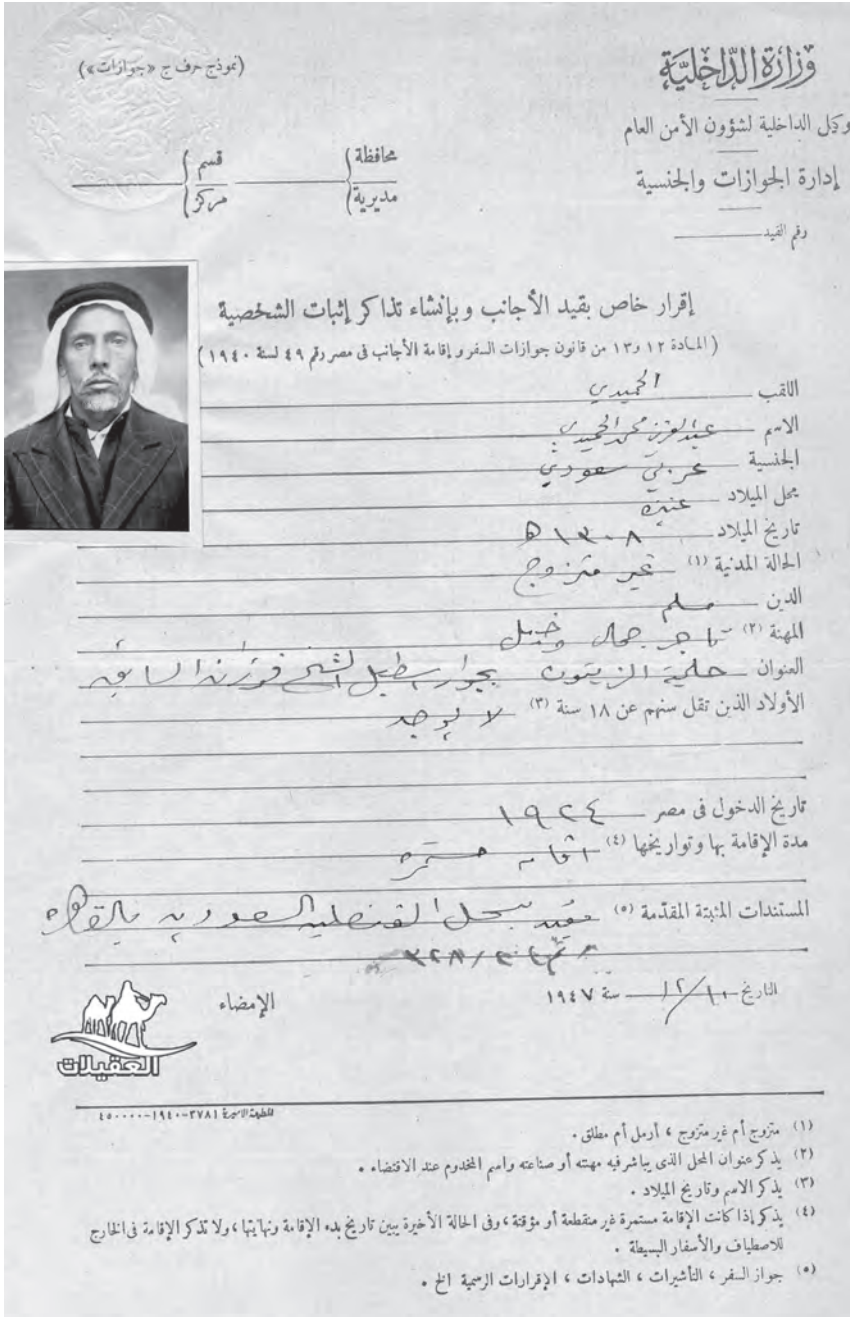 وزارة الداخلية
(نموذج حرف ج «جوازات»)
وكيل الداخلية لشؤون الأمن العام
إدارة الجوازات والجنسية
محافظة
مديرية
قسم
مركز
رقم القيد
إقرار خاص بقيد الأجانب وبإنشاء تذاكر إثبات الشخصية
(المادة ١٢ و١٣ من قانون جوازات السفر وإقامة الأجانب فى مصر رقم ٤٩ لسنة ١٩٤٠)
اللقب الحميدي
الاسم عبدالعزيز محمد الحميدي
الجنسية عربي سعودي
محل الميلاد عنيزة
تاريخ الميلاد ١٣٠٨ ه
الحالة المدنية (١) غير متزوج
الدين مسلم
المهنة (٢) تاجر جمال وخيل
العنوان حلمية الزيتون بجوار اسطبل الشيخ فوزان السابق
الأولاد الذين تقل سنهم عن ١٨ سنة (٣) لا يوجد
تاريخ الدخول فى مصر ١٩٢٤
مدة الإقامة بها وتواريخها (٤) اقامه مستمره
المستندات المثبتة المقدّمة (٥) مقيد بسجل القنصليه السعوديه بالقاهره
التاريخ ١٢/١٠ سنة ١٩٤٧
الإمضاء
العقيلات
المطبعة الاميرية ٣٧٨١-١٩٤٠-٤٥٠٠٠٠
(١) متزوج أم غير متزوج ، أرمل أم مطلق .
(٢) يذكر عنوان المحل الذى يباشر فيه مهنته أو صناعته واسم المخدوم عند الاقتضاء .
(٣) يذكر الاسم وتاريخ الميلاد .
(٤) يذكر إذا كانت الإقامة مستمرة غير منقطعة أو مؤقتة ، وفى الحالة الأخيرة يبين تاريخ بدء الإقامة ونهايتها ، ولا تذكر الإقامة فى الخارج
للاصطياف والأسفار البسيطة .
(٥) جواز السفر ، التأشيرات ، الشهادات ، الإقرارات الرسمية الخ .